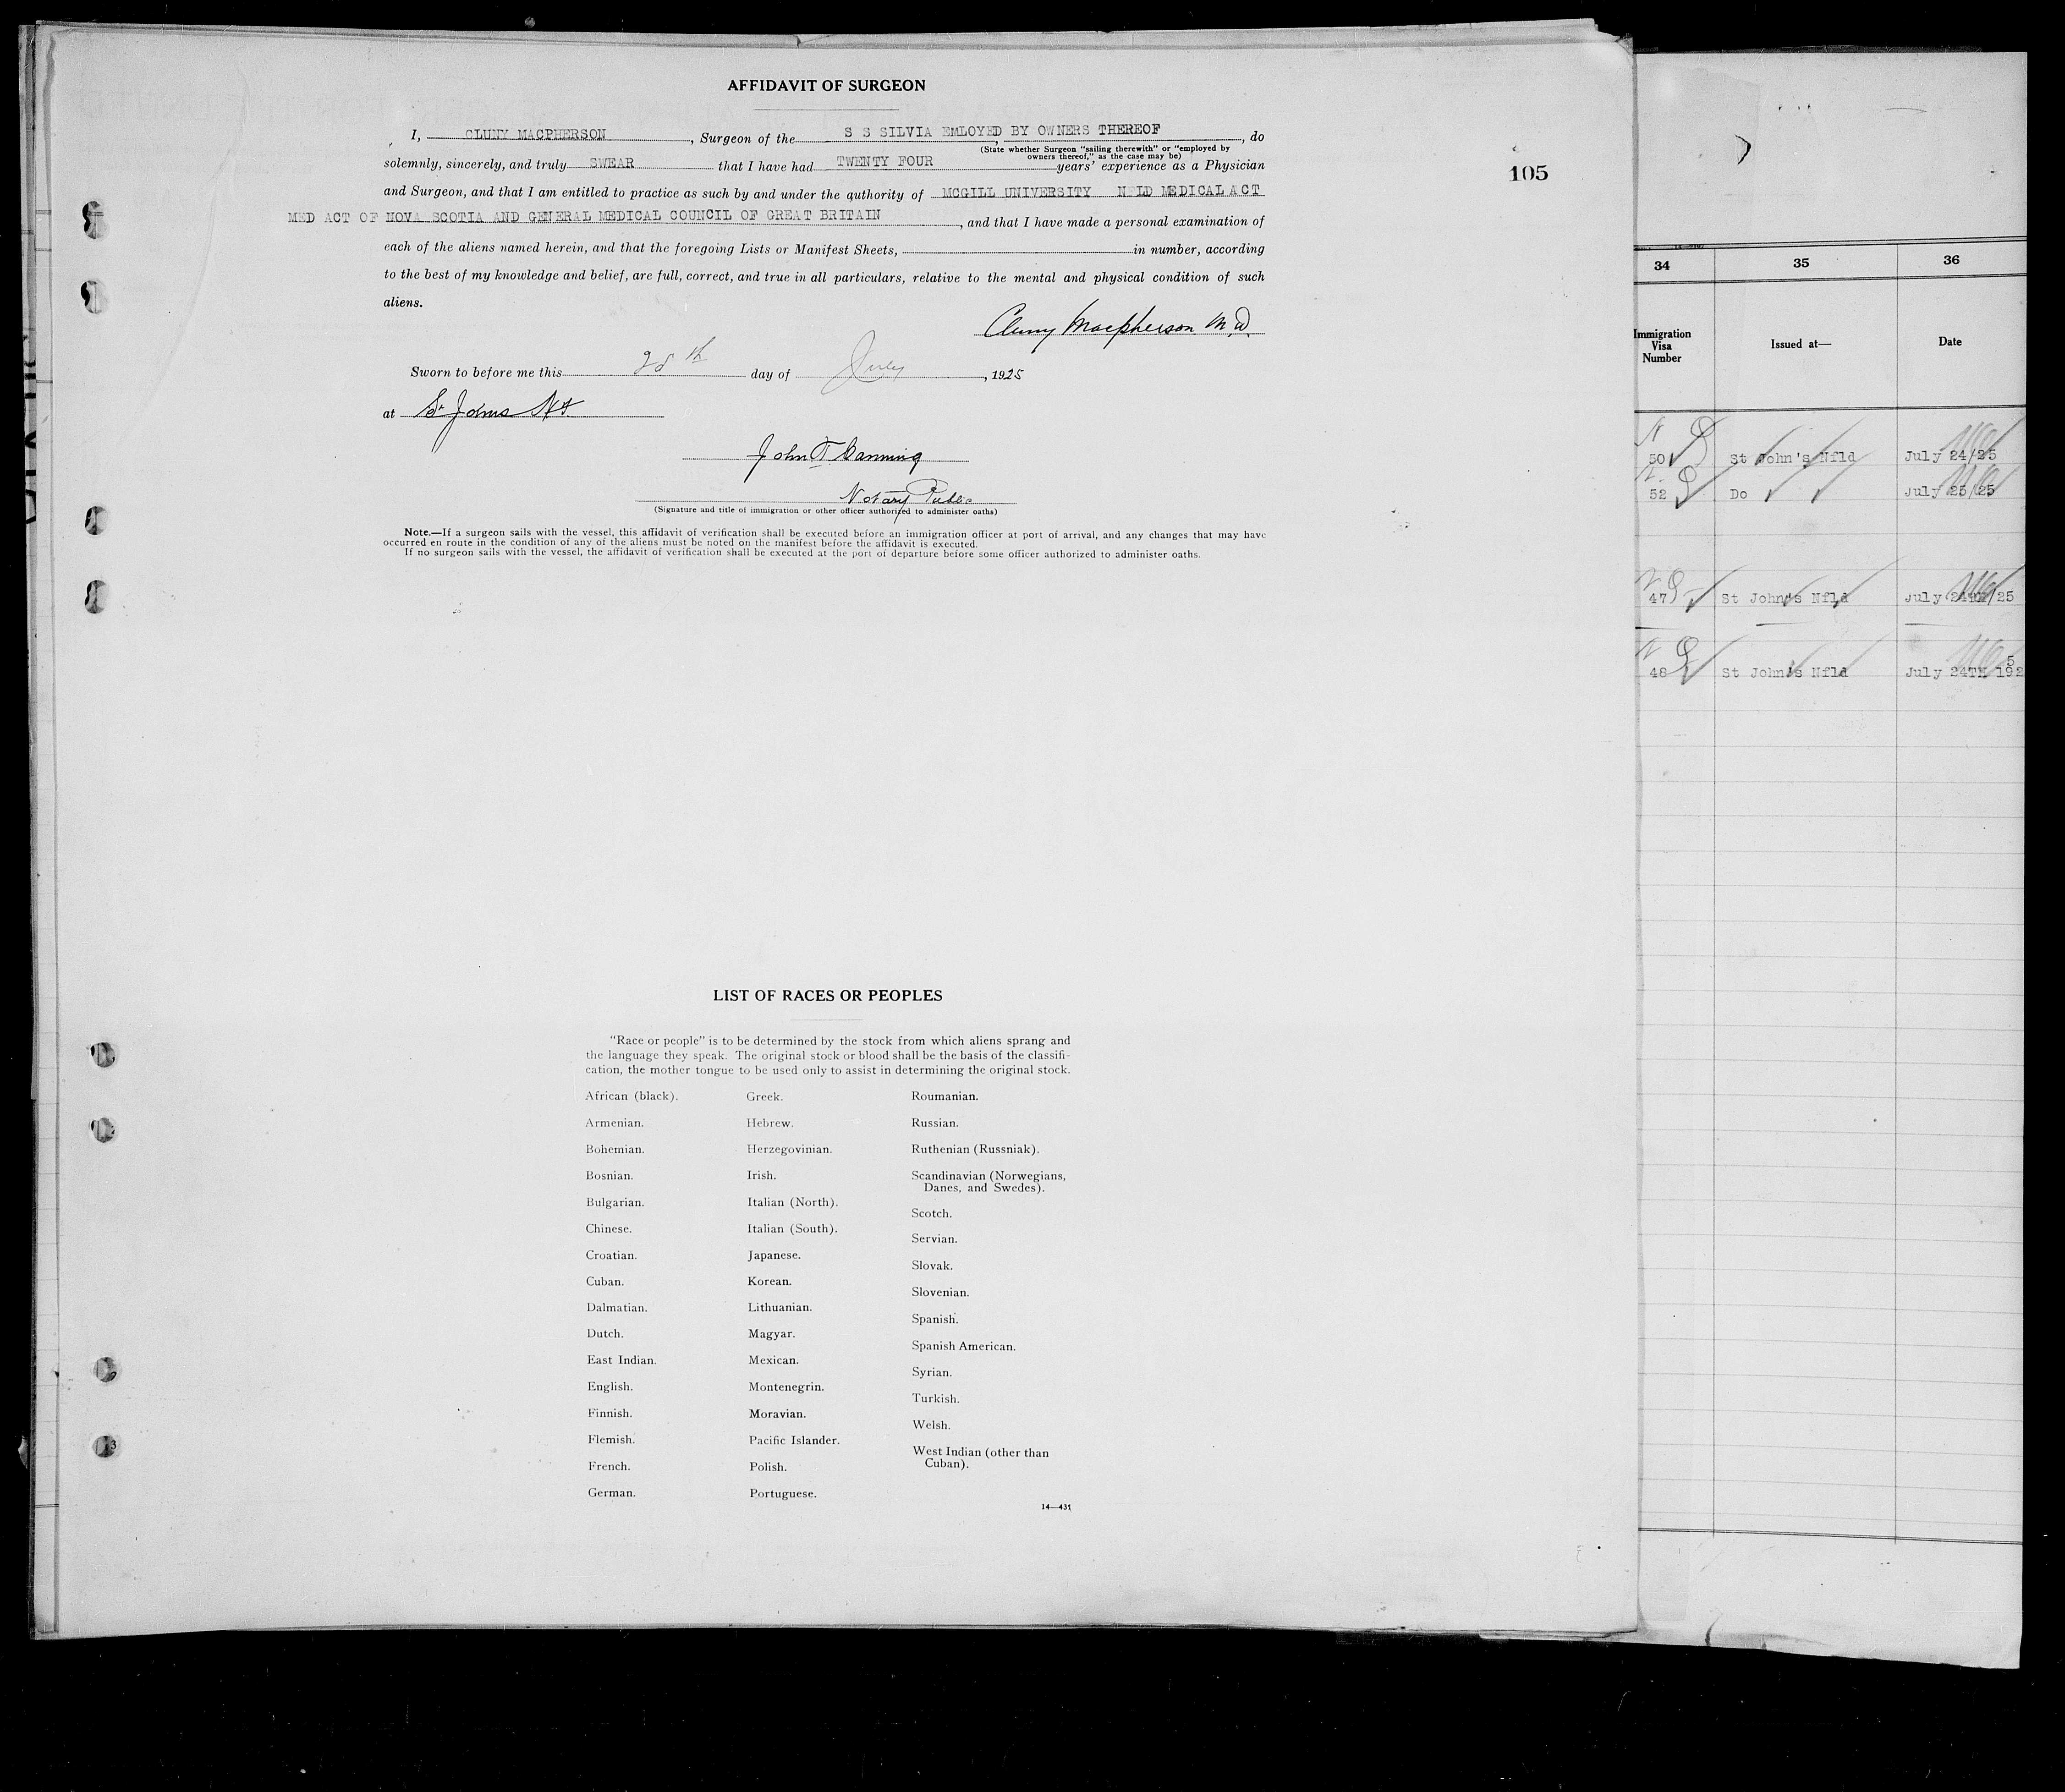 AFFIDAVIT OF SURGEON
I, CLUNY MACPHERSON, Surgeon of the S S SILVIA EMLOYED BY OWNERS THEREOF, do
(State whether Surgeon "sailing therewith" or "employed by
owners thereof," as the case may be)
solemnly, sincerely, and truly SWEAR that I have had TWENTY FOUR years' experience as a Physician
and Surgeon, and that I am entitled to practice as such by and under the authority of MCGILL UNIVERSITY NFLD MEDICAL ACT
MED ACT OF NOVA SCOTIA AND GENERAL MEDICAL COUNCIL OF GREAT BRITAIN, and that I have made a personal examination of
each of the aliens named herein, and that the foregoing Lists or Manifest Sheets, in number, according
to the best of my knowledge and belief, are full, correct, and true in all particulars, relative to the mental and physical condition of such
aliens.
Cluny Macpherson M.D.
Sworn to before me this day of July, 1925
at St Johns Nf
John T
Notary Public
(Signature and title of immigration or other officer authorized to administer oaths)
Note.—If a surgeon sails with the vessel, this affidavit of verification shall be executed before an immigration officer at port of arrival, and any changes that may have
occurred en route in the condition of any of the aliens must be noted on the manifest before the affidavit is executed.
If no surgeon sails with the vessel, the affidavit of verification shall be executed at the port of departure before some officer authorized to administer oaths.
105
LIST OF RACES OR PEOPLES
"Race or people" is to be determined by the stock from which aliens sprang and
the language they speak. The original stock or blood shall be the basis of the classifi-
cation, the mother tongue to be used only to assist in determining the original stock.
African (black).
Armenian.
Bohemian.
Bosnian.
Bulgarian.
Chinese.
Croatian.
Cuban.
Dalmatian.
Dutch.
East Indian.
English.
Finnish.
Flemish.
French.
German.
Greek.
Hebrew.
Herzegovinian.
Irish.
Italian (North).
Italian (South).
Japanese.
Korean.
Lithuanian.
Magyar.
Mexican.
Montenegrin.
Moravian.
Pacific Islander.
Polish.
Portuguese.
Roumanian.
Russian.
Ruthenian (Russniak).
Scandinavian (Norwegians,
Danes, and Swedes).
Scotch.
Servian.
Slovak.
Slovenian.
Spanish.
Spanish American.
Syrian.
Turkish.
Welsh.
West Indian (other than
Cuban).
14—431
34 35 36
Immigration
Visa
Number
Issued at—
Date
50 St John's Nfld July 24/25
52 Do July 25/25
47 St John's Nfld July 24TH/25
48 St John's Nfld July 24TH 1925